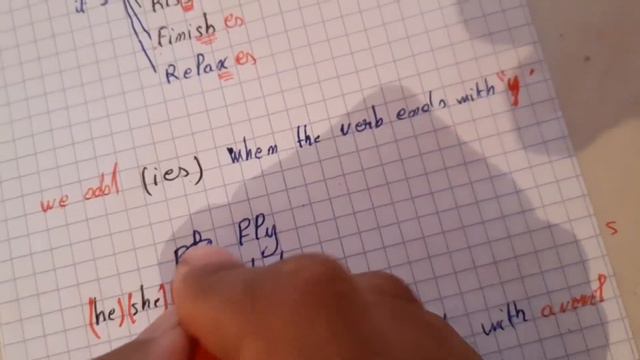 Finish es
Relax es
we add (ies) when the verb ends with "y"
Fly
(he)(she)
with a vowel